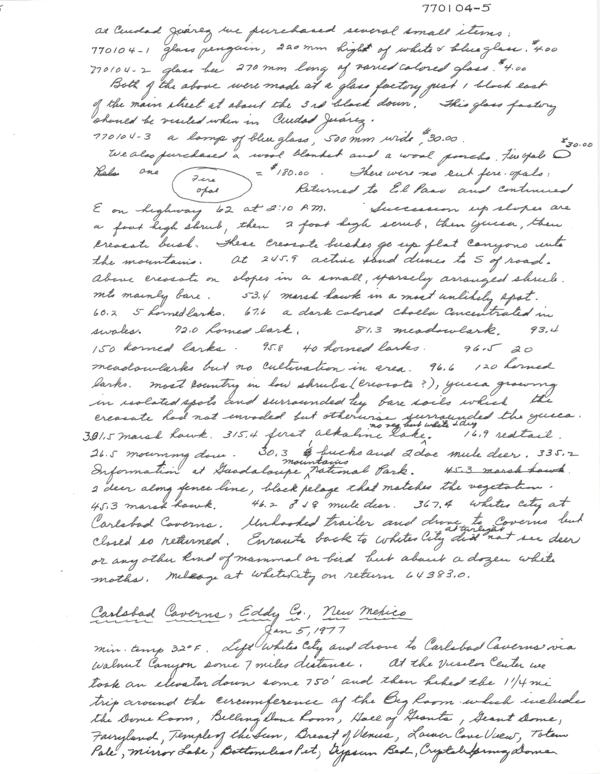 770104-5
at Ciudad Juárez we purchased several small items:
770104-1 glass penguin, 220 mm hight of white & blue glass. $4.00
770104-2 glass bee 270 mm long of varied colored glass. $4.00
Both of the above were made at a glass factory just 1 block east
of the main street at about the 3rd block down. This glass factory
should be visited when in Ciudad Juárez.
770104-3 a lamp of blue glass, 500 mm wide, $30.00.
We also purchased a wool blanket and a wool poncho. Fire opals $30.00
one Fire opal = $180.00. There were no cut fire-opals.
Returned to El Paso and continued
E on highway 62 at 2:10 P.M. Succession up slopes are
a foot high shrub, then 2 foot high scrub, then yucca, then
creosote bush. These creosote bushes go up flat canyons into
the mountains. At 245.9 active sand dunes to S of road.
Above creosote on slopes in a small, sparsely arranged shrub.
mts mainly bare. 53.4 marsh hawk in a most unlikely spot.
60.2 5 horned larks. 67.6 a dark colored cholla concentrated in
swales. 72.0 horned lark. 81.3 meadowlark. 93.4
150 horned larks. 95.8 40 horned larks. 96.5 20
meadowlarks but no cultivation in area. 96.6 120 horned
larks. most country in low shrubs (creosote?), yucca growing
in isolated spots and surrounded by bare soils which the
creosote had not invaded but otherwise surrounded the yucca.
301.5 marsh hawk. 315.4 first alkaline lake, no veg but white & dry. 16.9 redtail.
26.5 mourning dove. 30.3 bucks and 2 doe mule deer. 335.2
Information at Guadaloupe mountains National Park. 45.3 marsh hawk
2 deer along fence line, black pelage that matches the vegetation.
45.3 marsh hawk. 46.2 mule deer. 367.4 Whites City at
Carlsbad Caverns. Unhooked trailer and drove to Caverns but
closed so returned. Enroute back to Whites City at twilight did not see deer
or any other kind of mammal or bird but about a dozen white
moths. Mileage at White City on return 64383.0.
Carlsbad Caverns, Eddy Co., New Mexico
Jan 5, 1977
min. temp 32°F. Left Whites City and drove to Carlsbad Caverns via
Walnut Canyon some 7 miles distance. At the Visitor Center we
took an elevator down some 750' and then hiked the 1 1/4 mi
trip around the circumference of the Big Room which include
the Dome Room, Belling Dome Room, Hall of Giants, Giant Dome,
Fairyland, Temple of the Sun, Breast of Venus, Lower Cave View, Totem
Pole, Mirror Lake, Bottomless Pit, Gypsum Bed, Crystal Spring Dome